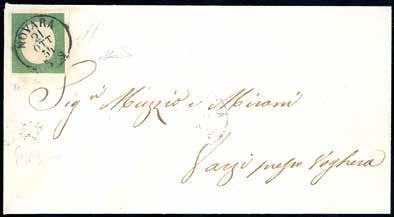 NOVARA
21
OTT
54
Sig.ri Muzzio e Mironi
Varzi presso Voghera